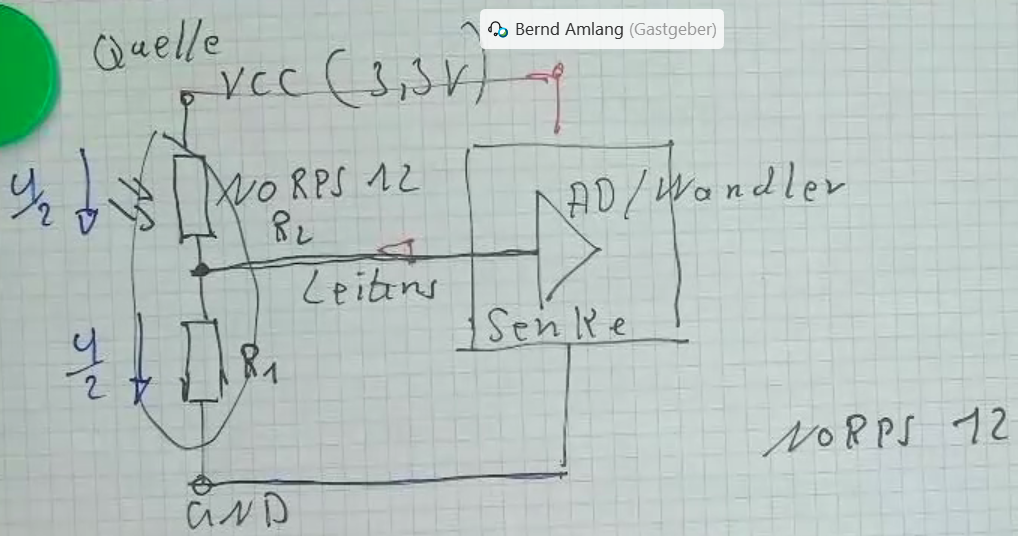 Bernd Amlang (Gastgeber)
Quelle
VCC (3,3V)
U/2
NORPS 12
R2
AD/Wandler
Leitung
Senke
U/2
R1
NORPS 12
GND